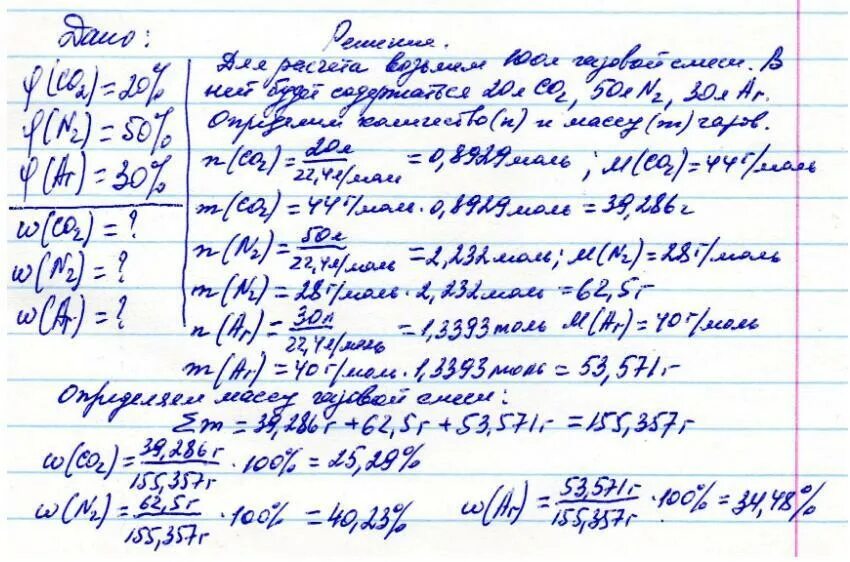 Дано:
φ(CO₂) = 20%
φ(N₂) = 50%
φ(Ar) = 30%
ω(CO₂) = ?
ω(N₂) = ?
ω(Ar) = ?
Решение.
Для расчета возьмем 100л газовой смеси. В
ней будет содержаться 20л CO₂, 50л N₂, 30л Ar.
Определим количество (n) и массу (m) газов.
n(CO₂) = 20л / 22,4л/моль = 0,8929 моль; M(CO₂) = 44г/моль
m(CO₂) = 44г/моль · 0,8929 моль = 39,286г
n(N₂) = 50л / 22,4л/моль = 2,232 моль; M(N₂) = 28г/моль
m(N₂) = 28г/моль · 2,232 моль = 62,5г
n(Ar) = 30л / 22,4л/моль = 1,3393 моль M(Ar) = 40г/моль
m(Ar) = 40г/моль · 1,3393 моль = 53,571г
Определяем массу газовой смеси:
Σm = 39,286г + 62,5г + 53,571г = 155,357г
ω(CO₂) = 39,286г / 155,357г · 100% = 25,29%
ω(N₂) = 62,5г / 155,357г · 100% = 40,23%
ω(Ar) = 53,571г / 155,357г · 100% = 34,48%